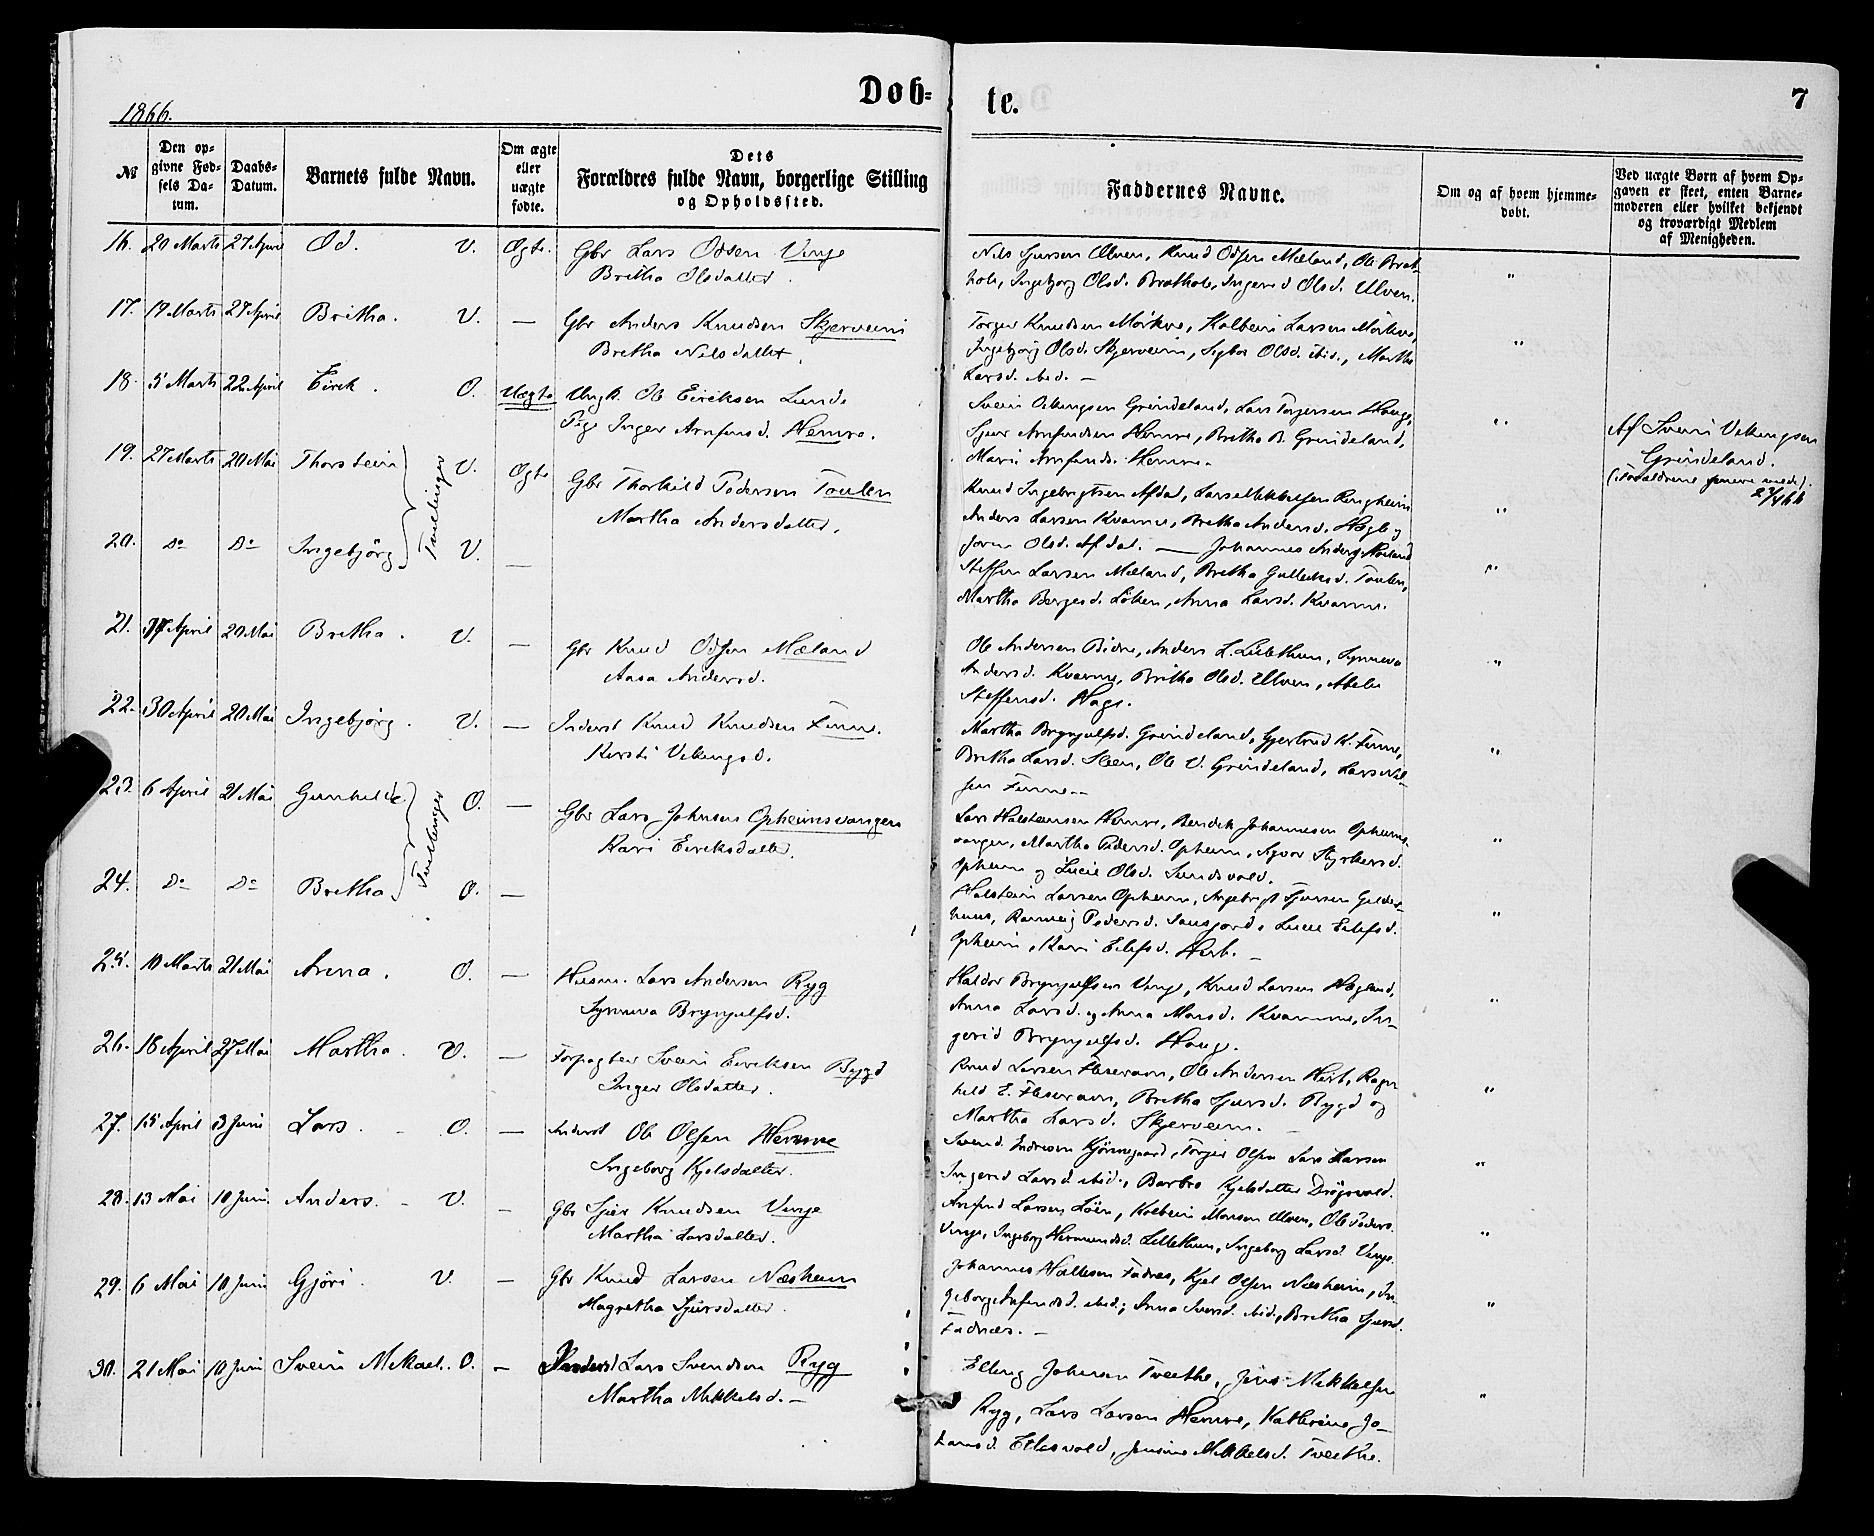 Døb-
te.
7
1866.
№
Den op-
givne Fød-
sels Da-
tum.
Daabs-
Datum.
Barnets fulde Navn.
Om ægte
eller
uægte
fødte.
Dets
Forældres fulde Navn, borgerlige Stilling
og Opholdssted.
Faddernes Navne.
Om og af hvem hjemme-
døbt.
Ved uægte Børn af hvem Op-
gaven er skeet, enten Barne-
moderen eller hvilket bekjendt
og troværdigt Medlem
af Menigheden.
16. 20 Marts 27 April Od. V. Ægte. Gbr Lars Odsen Vinje
Britha Olsdatter.
Nils Sjursen Ulven, Knud Odsen Mæland, Ole Brat-
hole, Ingebjorg Olsd. Brathole, Ingerid Olsd. Ulven. "
17. 19 Marts 27 April Britha. V. — Gbr Anders Knudsen Skjerveim
Bretha Nilsdatter.
Torger Knudsen Mörkve, Kolbein Larsen Mörkve,
Ingebjorg Olsd. Skjerveim, Sigbor Olsd. ibid., Martha
Larsd. ibid. — "
18. 5 Marts 22 April Eirek. O. Uægte Ungk. Ole Eireksen Lunde
Pige Inger Arnfinsd. Hemre.
Svein Vikingsen Grindeland, Lars Torgersen Hauge,
Sjur Arnfindsen Hemre, Britha B. Grindeland,
Mari Arnfinds. Hemre. "
Af Svein Vikingsen
Grindeland.
19. 27 Marts 20 Mai Thorstein V. Ægte Gbr Thorkild Pedersen Toulen
Martha Andersdatter.
Tvillinger
Knud Ingebrigtsen Afdal, Lars Mikkelsen Ringheim
Anders Larsen Kvarme, Bretha Andersd. Hage og
Joren Olsd. Afdal. — Johannes Anders. Mæland "
20. Do Do Ingebjörg V. —
Steffen Larsen Mæland, Bretha Gulleiksd. Toulen,
Martha Bergesd. Löken, Anna Larsd. Kvarme. "
21. 17 April 20 Mai Bretha. V. — Gbr Knud Odsen Mæland
Aasa Andersd.
Ole Andersen Bidne, Anders L. Lillethun, Synneva
Andersd. Kvarme, Britha Olsd. Ulven, Abelu
Steffensd. Hage. "
22. 30 April 20 Mai Ingebjörg. V. — Inderst Knud Knudsen Finne.
Kirsti Vikingsd.
Martha Brynjulfsd. Grindeland, Gjertrud K. Finne,
Britha Larsd. Steen, Ole V. Grindeland, Lars Nil-
sen Finne. — "
23. 6 April 21 Mai Gunhilde O. — Gbr Lars Johnsen Opheimsvangen
Kari Eireksdatter.
Tvillinger
Lars Halsteinsen Hemre, Bendik Johannesen Opheims-
vangen, Martha Pedersd. Opheim, Sigvor Styrkersd.
Opheim og Lucie Olsd. Sundsvold. "
24. Do Do Bretha O. —
Halstein Larsen Opheim, Ingebrigt Sjursen Gelder-
huus, Rannveig Pedersd. Saugjord, Lucie Eilefsd.
Opheim, Kari Eilefsd. Hirth. — "
25. 10 Marts 21 Mai Anna. O. — Husm. Lars Andersen Ryg
Synneva Brynjulfsd.
Haldor Brynjulfsen Vinje, Knud Larsen Hægland,
Anna Larsd. og Anna Monsd. Kvamme, In-
gerid Brynjulfsd. Hauge. "
26. 18 April 27 Mai Martha. V. — Forpagter Svein Eireksen Rygd
Inger Olsdatter.
Knud Larsen Flisevam, Ole Andersen Hirth, Ragn-
hild E. Flisevam, Bretha Sjursd. Rygd og
Martha Larsd. Skjerveim. — "
27. 15 April 3 Juni Lars. O. — Inderst Ole Olsen Hemre
Ingeborg Kjelsdatter.
Svend Indresen Kjönnagaard, Torger Olsen Lars Larsen
Ingerid Larsd. ibid., Barbro Kjelsdatter Drögsvold. "
28. 13 Mai 10 Juni Anders. V. — Gbr Sjur Knudsen Vinje
Martha Larsdatter.
Arnfind Larsen Löen, Kolbein Monsen Ulven, Ole Peders.
Vinje, Ingeborg Hermundsd. Lillethun, Ingeborg Larsd. Vinje. "
29. 6 Mai 10 Juni Gjöri. V. — Gbr Knud Larsen Næsheim
Magretha Sjursdatter.
Johannes Hallesen Fadnes, Kjel Olsen Næsheim, In-
geborg Arfindsd. ibid., Anna Iversd. ibid., Bretha Sjursd.
Fadnæs. — "
30. 21 Mai 10 Juni Svein Mikael. O. — Inderst Lars Svendsen Ryg
Martha Mikkelsd. —
Elling Johnsen Tveethe, Jens Mikkelsen
Ryg, Lars Larsen Hemre, Kathrine Jo-
hansd. Ellisvold, Jensine Mikkelsd. Tveethe. "